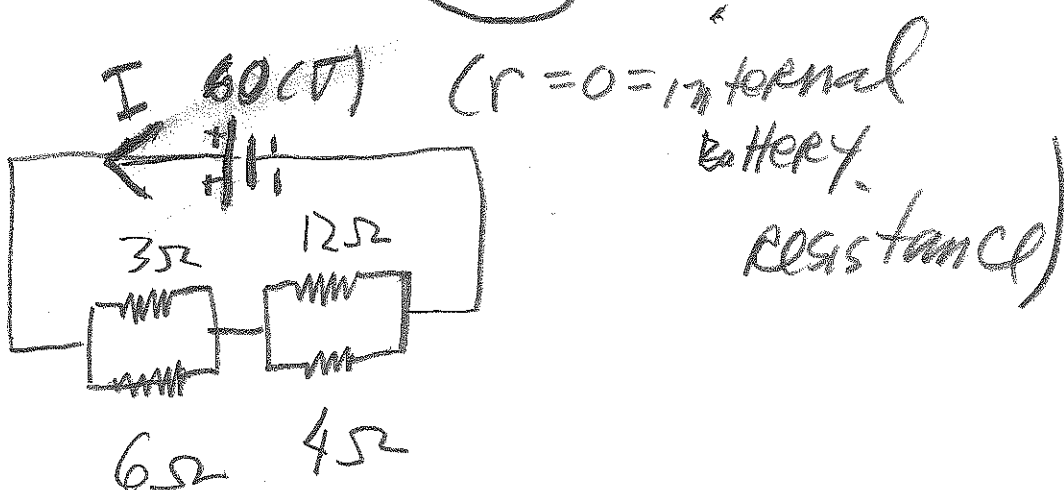 I 60(V) (r=0=internal
Battery
resistance)
+ -
+ -
3Ω 12Ω
6Ω 4Ω